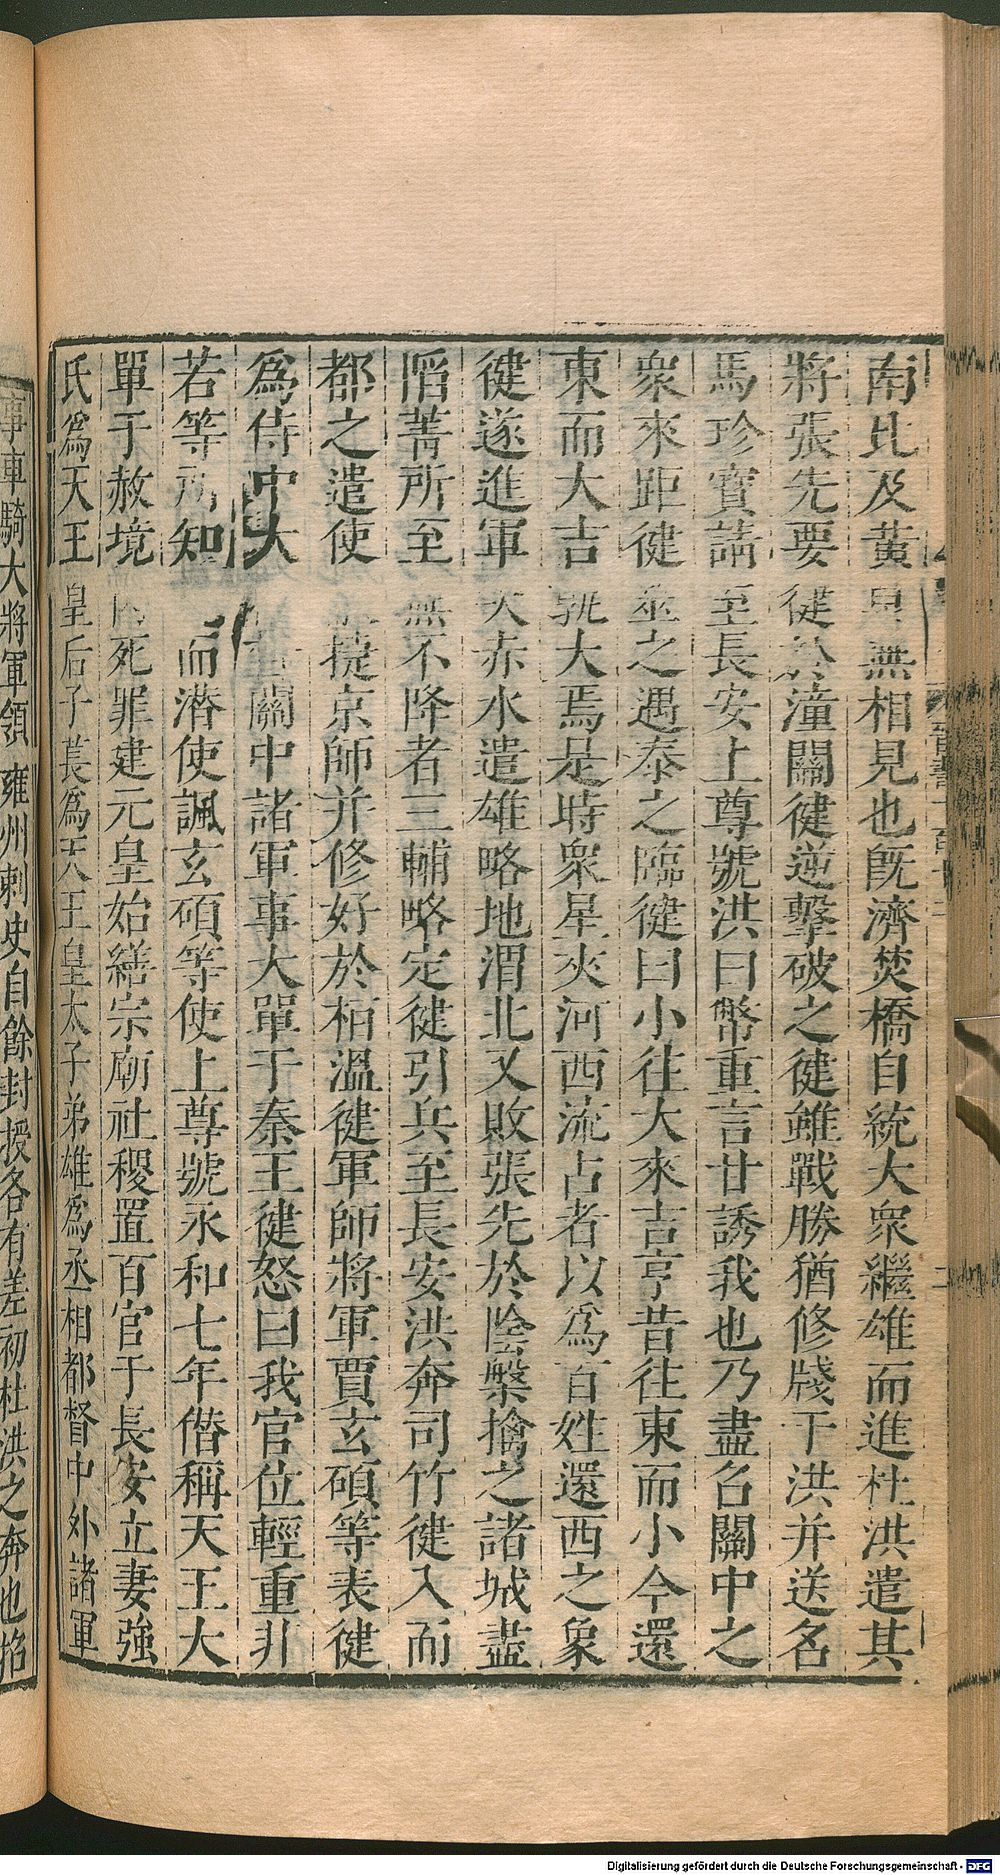 南比及黃泉無相見也既濟焚橋自統大衆繼雄而進杜洪遣其
將張先要健於潼關健逆擊破之健雖戰勝猶修牋于洪并送名
馬珍寶請至長安上尊號洪曰幣重言甘誘我也乃盡名關中之
衆來距健筮之遇泰之臨健曰小往大來吉亨昔往東而小今還
東而大吉孰大焉是時衆星夾河西流占者以爲百姓還西之象
健遂進軍次赤水遣雄略地渭北又敗張先於陰槃擒之諸城盡
陷菁所至無不降者三輔略定健引兵至長安洪奔司竹健入而
都之遣使捷京師并修好於栢溫健軍師將軍賈玄碩等表健
爲侍中大關中諸軍事大單于秦王健怒曰我官位輕重非
若等所知而潜使諷玄碩等使上尊號永和七年僭稱天王大
單于赦境死罪建元皇始繕宗廟社稷置百官于長安立妻強
氏爲天王皇后子萇爲天王皇太子弟雄爲丞相都督中外諸軍
事車騎大將軍領雍州刺史自餘封授各有差初杜洪之奔也招
晉書
Digitalisierung gefördert durch die Deutsche Forschungsgemeinschaft - DFG